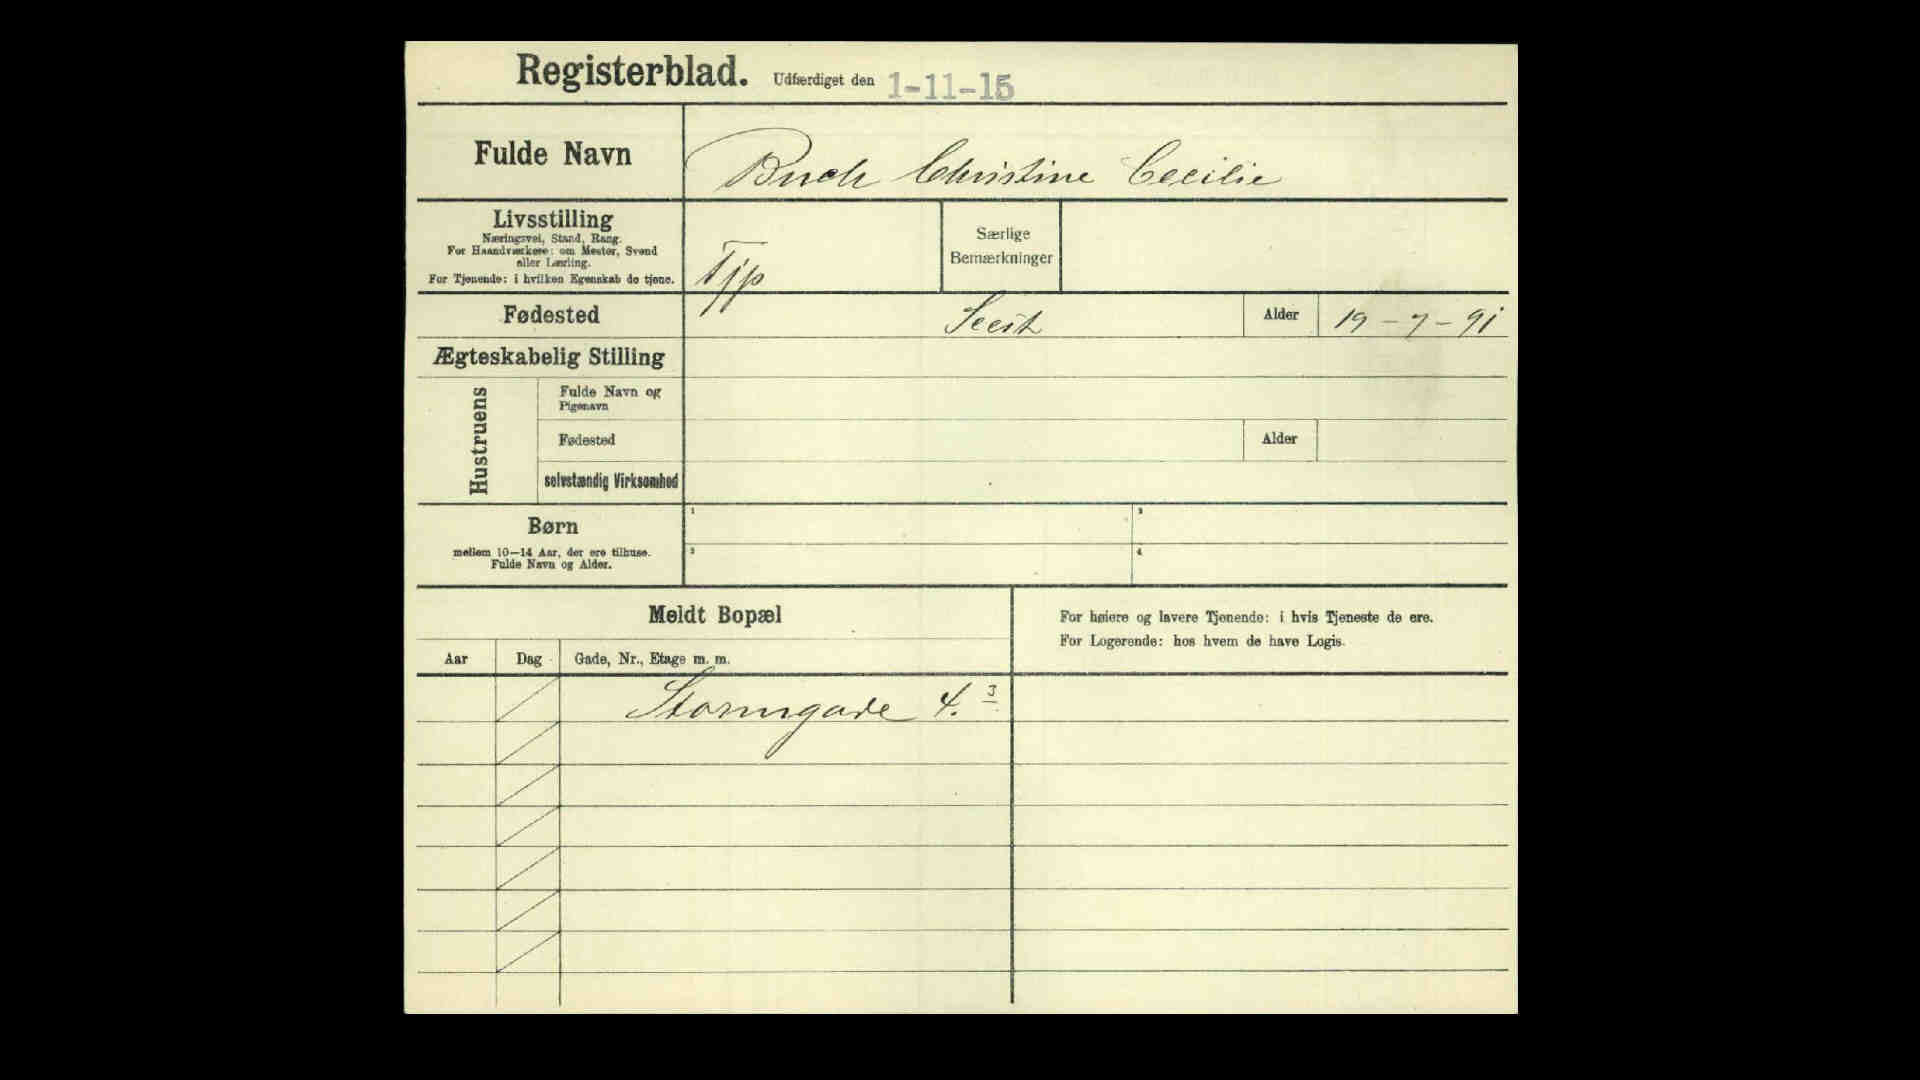 Registerblad. Udfærdiget den 1-11-15
Fulde Navn
Buch Christine Cecilie
Livsstilling
Næringsvei, Stand, Rang.
For Haandværkere: om Mester, Svend
eller Lærling.
For Tjenende: i hvilken Egenskab de tjene.
Tjp
Særlige
Bemærkninger
Fødested
Seest
Alder
19-7-91
Ægteskabelig Stilling
Hustruens
Fulde Navn og
Pigenavn
Fødested
Alder
selvstændig Virksomhed
Børn
mellem 10—14 Aar, der ere tilhuse.
Fulde Navn og Alder.
1
3
2
4
Meldt Bopæl
For høiere og lavere Tjenende: i hvis Tjeneste de ere.
For Logerende: hos hvem de have Logis.
Aar
Dag
Gade, Nr., Etage m. m.
Stormgade 4. 3